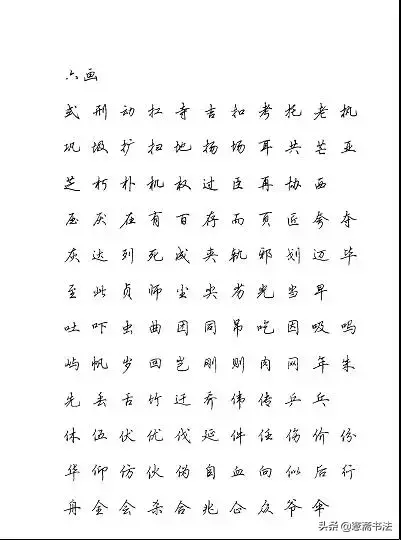 六画
式 刑 动 扛 寺 吉 扣 考 托 老 执
巩 圾 扩 扫 地 扬 场 耳 共 芒 亚
芝 朽 朴 机 权 过 臣 再 协 西
压 厌 在 有 百 存 而 页 匠 夸 夺
灰 达 列 死 成 夹 轨 邪 划 迈 毕
至 此 贞 师 尘 尖 劣 光 当 早
吐 吓 虫 曲 团 同 吊 吃 因 吸 吗
屿 帆 岁 回 岂 刚 则 肉 网 年 朱
先 丢 舌 竹 迁 乔 伟 传 乒 乓
休 伍 伏 优 伐 延 件 任 伤 价 份
华 仰 仿 伙 伪 自 血 向 似 后 行
舟 全 会 杀 合 兆 企 众 爷 伞
头条 @寒斋书法